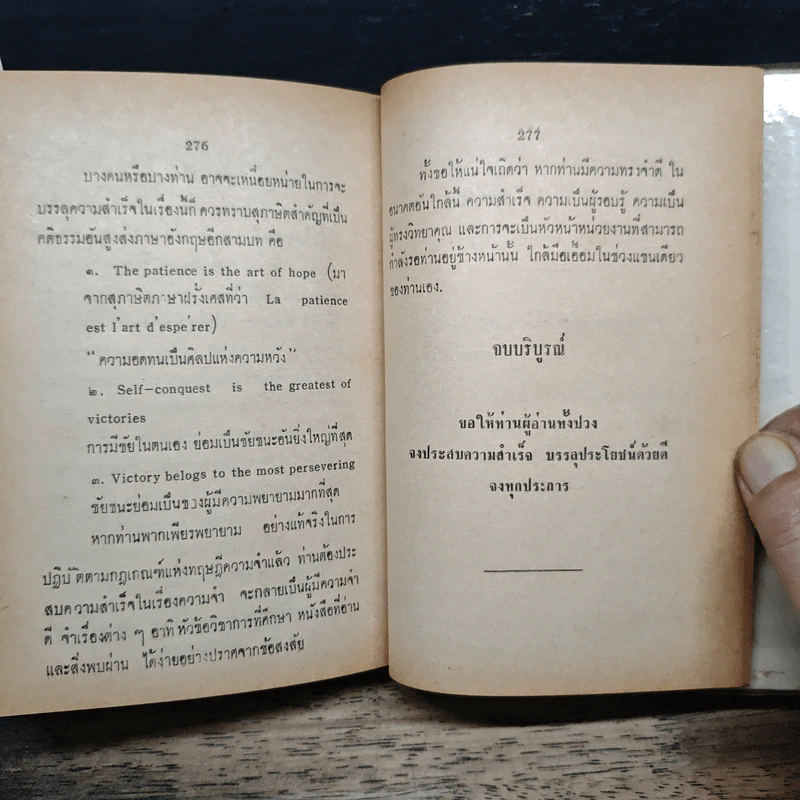 276
บางคนหรือบางท่าน อาจจะเหนื่อยหน่ายในการจะ
บรรลุความสำเร็จในเรื่องนี้ก็ ควรทราบสุภาษิตสำคัญที่เป็น
คติธรรมอันสูงส่งภาษาอังกฤษอีกสามบท คือ
๑. The patience is the art of hope (มา
จากสุภาษิตภาษาฝรั่งเศสที่ว่า La patience
est l'art d'espe'rer)
"ความอดทนเป็นศิลปแห่งความหวัง"
๒. Self-conquest is the greatest of
victories
การมีชัยในตนเอง ย่อมเป็นชัยชนะอันยิ่งใหญ่ที่สุด
๓. Victory belogs to the most persevering
ชัยชนะย่อมเป็นของผู้มีความพยายามมากที่สุด
หากท่านพากเพียรพยายาม อย่างแท้จริงในการ
ปฏิบัติตามกฎเกณฑ์แห่งทฤษฎีความจำแล้ว ท่านต้องประ
สบความสำเร็จในเรื่องความจำ จะกลายเป็นผู้มีความจำ
ดี จำเรื่องต่าง ๆ อาทิ หัวข้อวิชาการที่ศึกษา หนังสือที่อ่าน
และสิ่งพบผ่าน ได้ง่ายอย่างปราศจากข้อสงสัย
277
ทั้งขอให้แน่ใจเถิดว่า หากท่านมีความทรงจำดี ใน
อนาคตอันใกล้นี้ ความสำเร็จ ความเป็นผู้รอบรู้ ความเป็น
ผู้ทรงวิทยาคุณ และการจะเป็นหัวหน้าหน่วยงานที่สามารถ
กำลังรอท่านอยู่ข้างหน้านั้น ใกล้มือเอื้อมในช่วงแขนเดียว
ของท่านเอง.
จบบริบูรณ์
ขอให้ท่านผู้อ่านทั้งปวง
จงประสบความสำเร็จ บรรลุประโยชน์ด้วยดี
จงทุกประการ